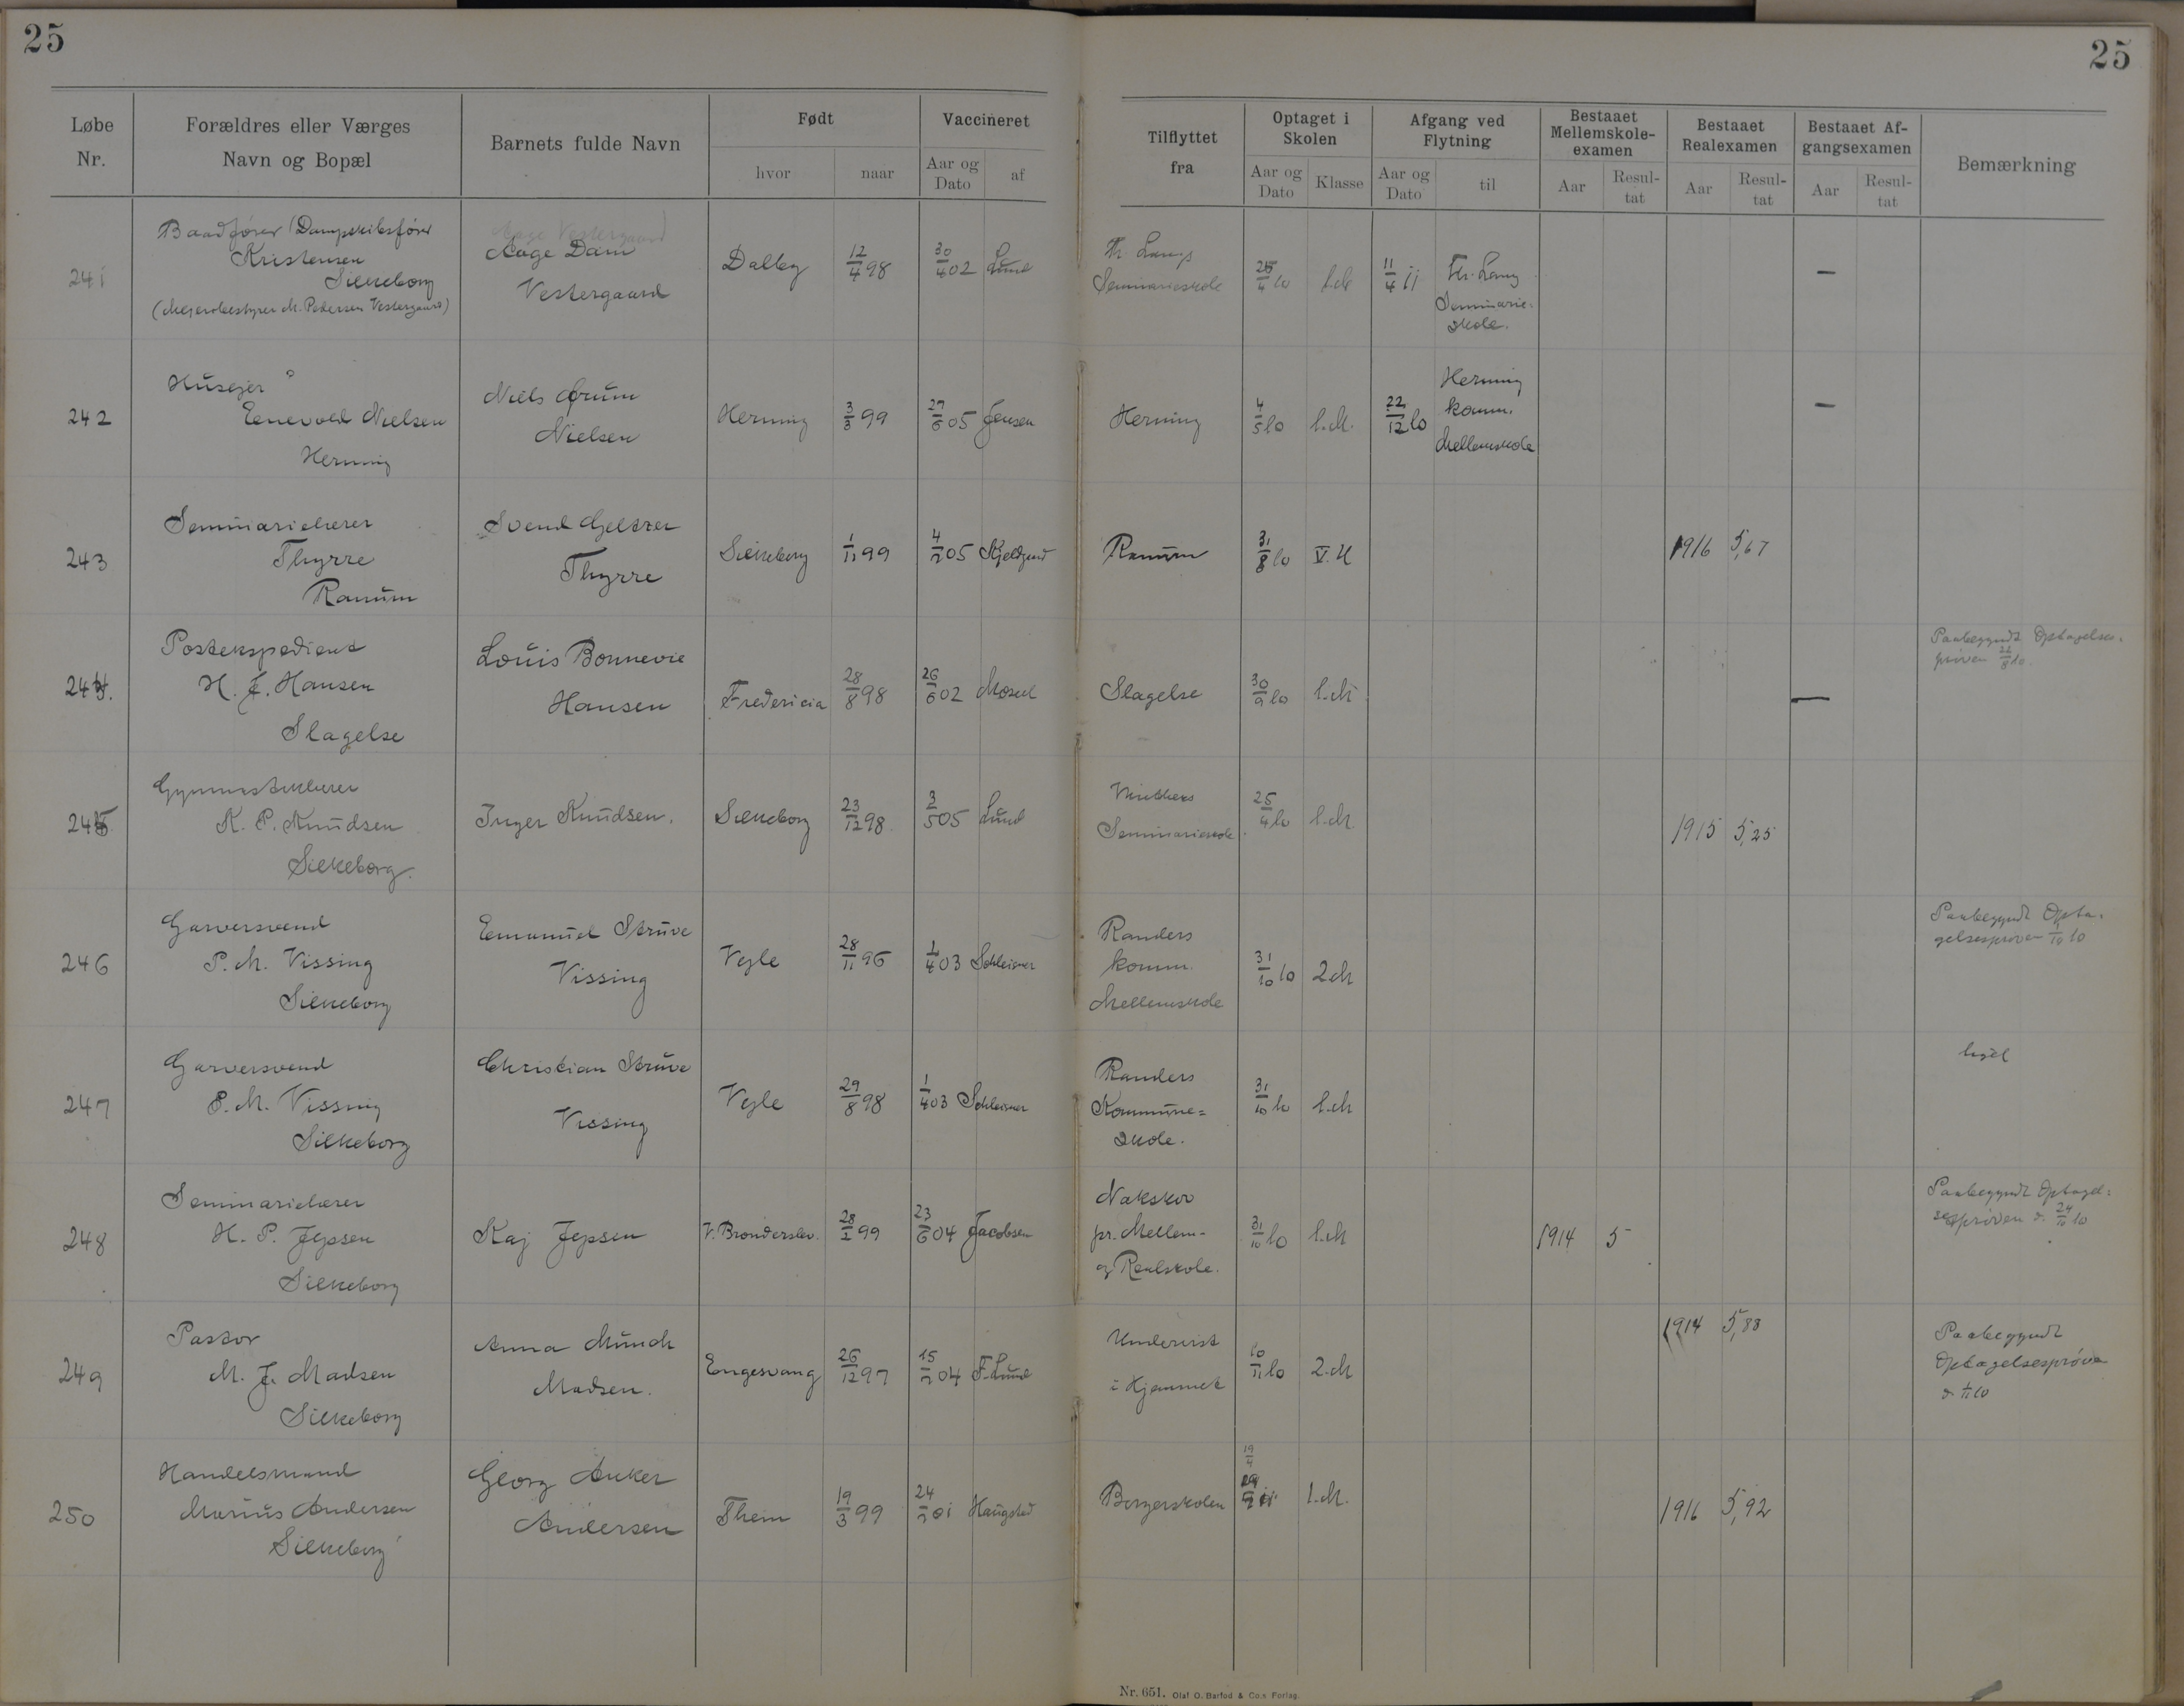 25
25
Løbe Nr.
Forældres eller Værges Navn og Bopæl
Barnets fulde Navn
Født
hvor
naar
Vaccineret
Aar og Dato
af
Tilflyttet fra
Optaget i Skolen
Aar og Dato
Klasse
Afgang ved Flytning
Aar og Dato
til
Bestaaet Mellemskole-examen
Aar
Resul-tat
Bestaaet Realexamen
Aar
Resul-tat
Bestaaet Af-gangsexamen
Aar
Resul-tat
Bemærkning
241
Baadfører (Dampskibsfører
Kristensen
Silkeborg
(Mejeribestyrer M. Pedersen Vestergaard)
Aage Vestergaard
Aage Dam
Vestergaard
Dalby
12/4 98
30/4 02
Lund
Th. Langs
Seminarieskole
25/4 10
1.M
11/4 11
Th. Lang
Seminarie-
skole.
—
242
Husejer
Enevold Nielsen
Herning
Niels Ørum
Nielsen
Herning
3/3 99
27/6 05
Jensen
Herning
4/5 10
1.M.
22/12 10
Herning
komm.
Mellemskole
—
243
Seminarielærer
Thyrre
Ranum
Svend Geltzer
Thyrre
Silkeborg
1/11 99
4/7 05
Kjeldgrd
Ranum
31/8 10
V. U
1916
5,67
244.
Postekspedient
H. J. Hansen
Slagelse
Louis Bonnevie
Hansen
Fredericia
28/8 98
26/6 02
Mosul
Slagelse
30/9 10
1.M
—
Paabegyndt Optagelses-
prøven 22/8 10.
245
Gymnastiklærer
K. P. Knudsen
Silkeborg.
Inger Knudsen.
Silkeborg
23/12 98
3/5 05
Lund
Seminarieskole.
25/4 10
1.M
1915
5,25
246
Garversvend
P. M. Vissing
Silkeborg
Emanuel Struve
Vissing
Vejle
28/11 96
1/4 03
Schleisner
Randers
komm.
Mellemskole
31/10 10
2.M
Paabegyndt Opta-
gelsesprøven 1/10 10
247
Garversvend
P. M. Vissing
Silkeborg
Christian Struve
Vissing
Vejle
29/8 98
1/4 03
Schleisner
Randers
Kommune=
skole.
31/10 10
1.M
248
Seminarielærer
H. P. Jepsen
Silkeborg
Kaj Jepsen
V. Brønderslev.
28/2 99
23/6 04
Jacobsen
Nakskov
pr. Mellem-
og Realskole.
31/10 10
1.M
1914
5
Paabegyndt Optagel=
sesprøven d. 24/10 10
249
Pastor
M. J. Madsen
Silkeborg
Anna Munch
Madsen.
Engesvang
26/12 97
15/7 04
F. Lund
Undervist
i Hjemmet
10/11 10
2.M
1914
5,88
Paabegyndt
Optagelsesprøve
d. 1/11 10
250
Handelsmand
Marius Andersen
Silkeborg
Georg Anker
Andersen
Them
19/3 99
24/7 01
Haugsted
Borgerskolen
19/4
1.M.
1916
5,92
Nr. 651. Olaf O. Barfod & Co.s Forlag.